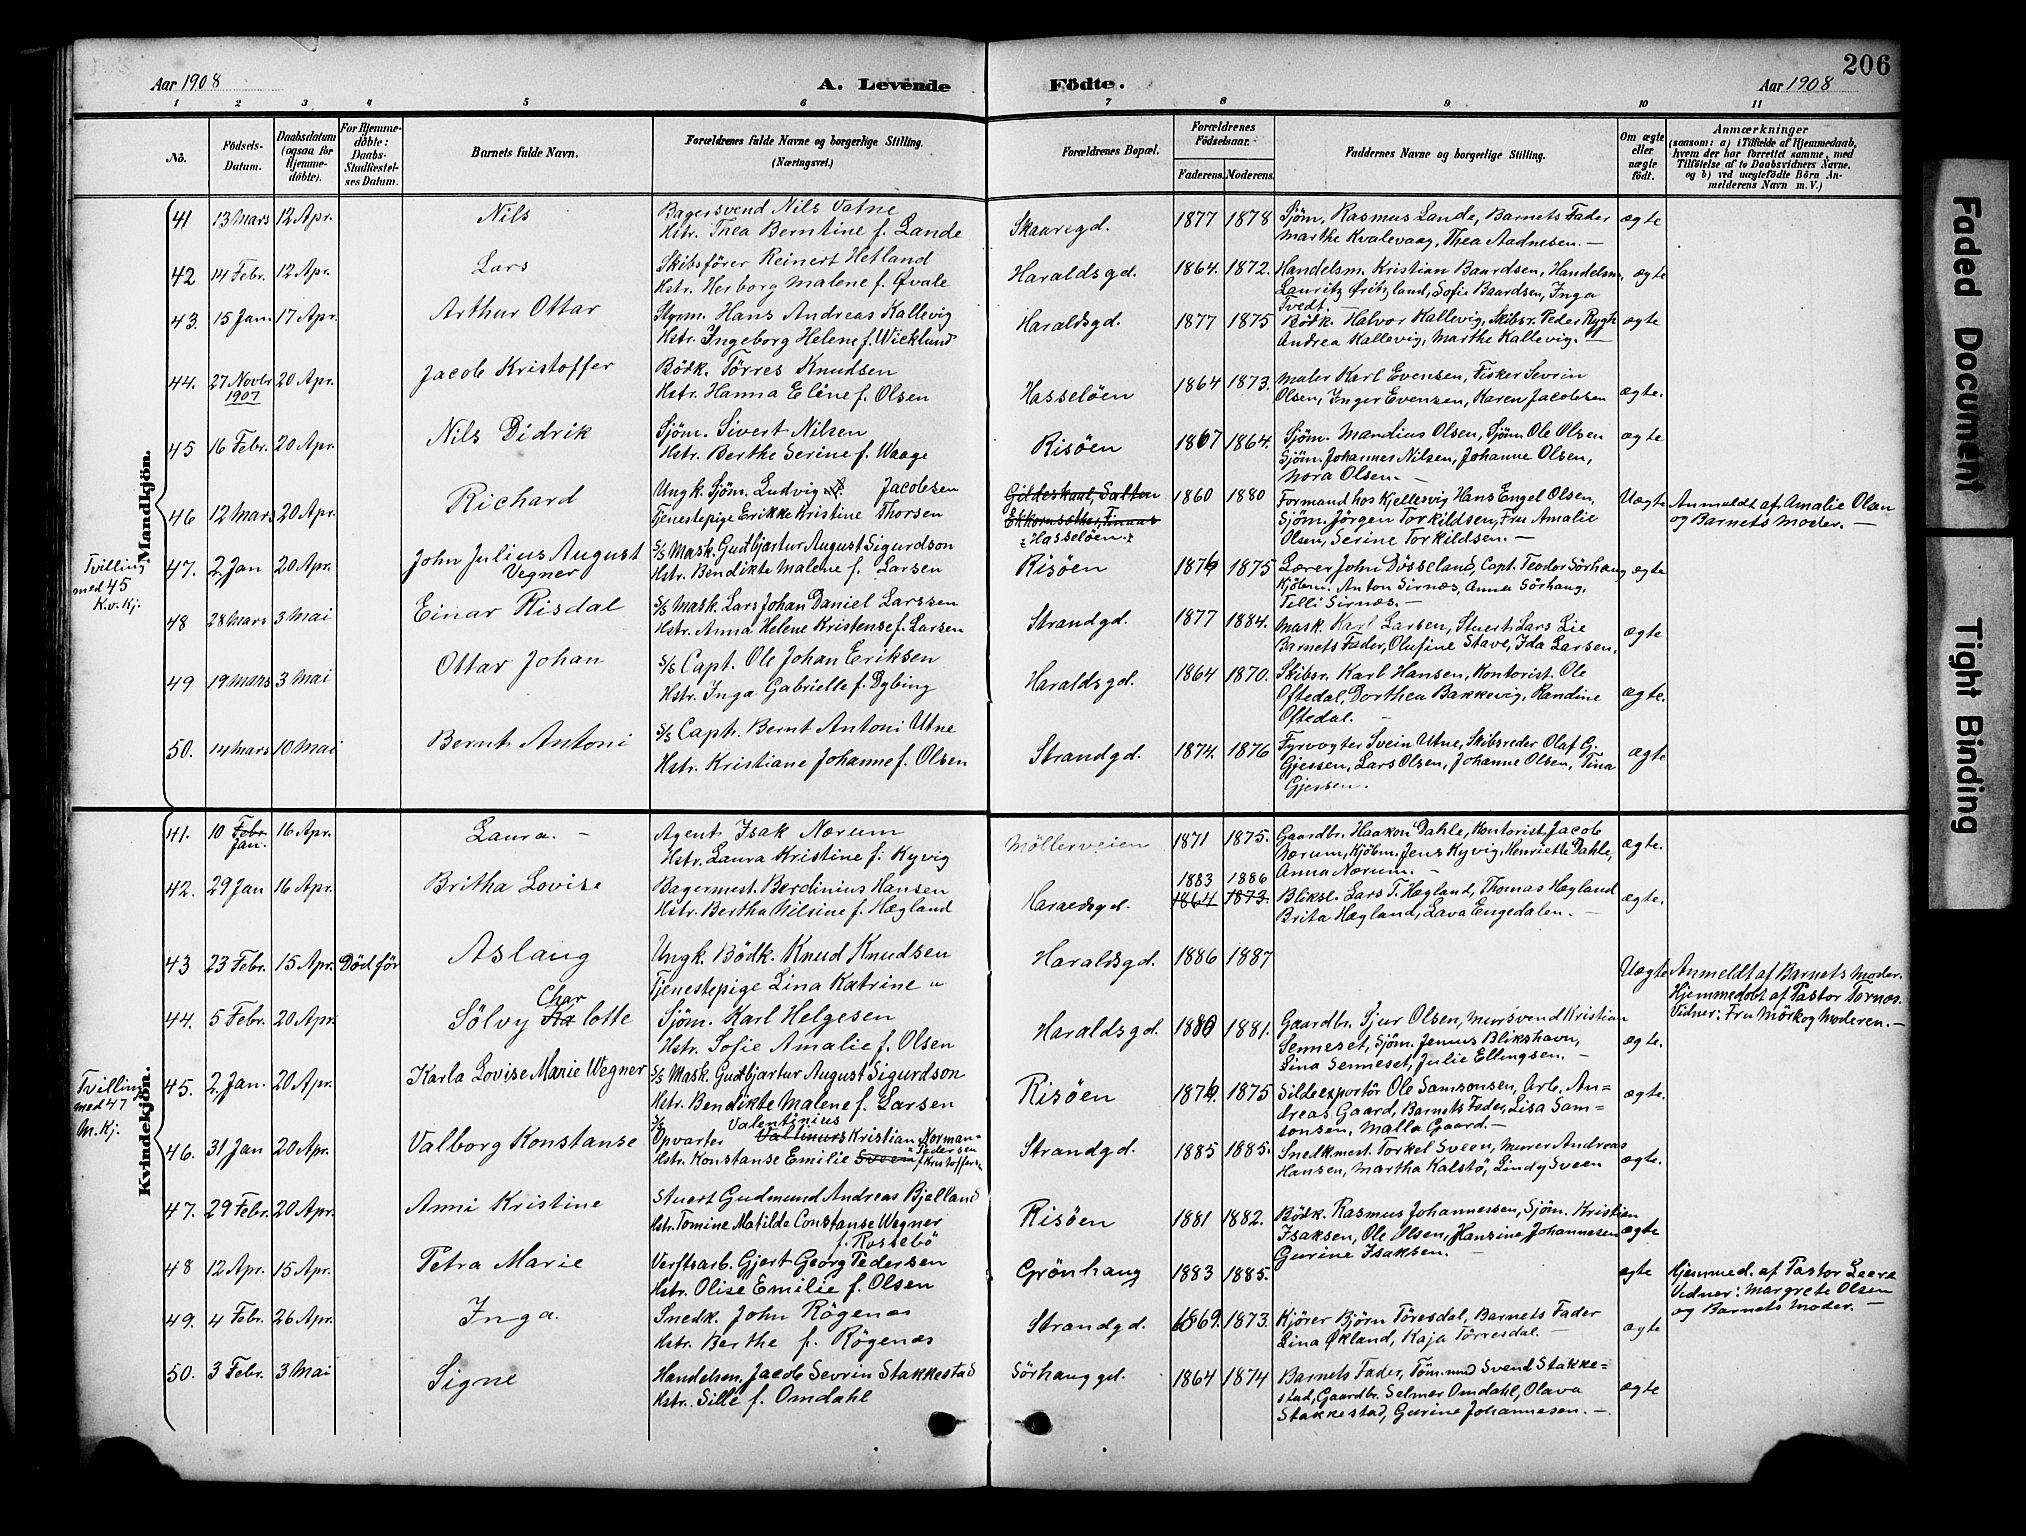 206
Aar 1908
A. Levende Födte.
Aar 1908
1 2 3 4 5 6 7 8 9 10 11
No.
Födsels-Datum.
Daabsdatum (ogsaa for Hjemme-döbte).
For Hjemme-döbte: Daabs-Stadfæstelses Datum.
Barnets fulde Navn.
Forældrenes fulde Navne og borgerlige Stilling. (Næringsvei.)
Forældrenes Bopæl.
Forældrenes Födselsaar.
Faderens. Moderens.
Faddernes Navne og borgerlige Stilling.
Om ægte eller uægte födt.
Anmærkninger (saasom: a) i Tilfælde af Hjemmedaab, hvem der har forrettet samme, med Tilföielse af to Daabsvidners Navne, og b) ved uægtefödte Börn Anmelderens Navn m. V.)
Mandkjön.
41 13 Mars 12 Apr. Nils
Bagersvend Nils Vatne
Hstr. Thea Berntine f. Lande
Skaaregd. 1877 1878
Sjöm. Rasmus Lande, Barnets Fader
Marthe Kvalevaag, Thea Aadnesen. —
ægte
42 14 Febr. 12 Apr. Lars
Skibsförer Reinert Hetland
Hstr. Herborg Malene f. Øvale
Haraldsgd. 1864. 1872.
Handelsm. Kristian Baardsen, Handelsm.
Lauritz Øritzland, Sofie Baardsen, Inga
Tvedt.
ægte
43. 15 Jan. 17 Apr. Arthur Ottar
Styrm. Hans Andreas Kallevig
Hstr. Ingeborg Helene f. Wicklund
Haraldsgd. 1877 1875
Bödk. Halvor Kallevig, Skibsr. Peder Rygh
Andrea Kallevig, Marthe Kallevig. —
ægte
44. 27 Novbr 1907 20 Apr. Jacob Kristoffer
Bödk. Törres Knudsen
Hstr. Hanna Eline f. Olsen
Hasselöen 1864 1873.
Maler Karl Evensen, Fisker Sevrin
Olsen, Inger Evensen, Karen Jacobsen
ægte.
45 16 Febr. 20 Apr. Nils Didrik
Sjöm. Sivert Nilsen
Hstr. Berthe Serine f. Waage
Risöen 1867 1864.
Sjöm. Mandius Olsen, Sjöm. Ole Olsen
Sjöm. Johannes Nilsen, Johanne Olsen,
Nora Olsen. —
ægte
46 12 Mars 20 Apr. Richard
Ungk. Sjöm. Ludvig Jacobsen
Tjenestepige Erikke Kristine Thorsen
Gildeskaal, Salten
Hasselöen.
1860 1880
Formand hos Kjellesvig Hans Engel Olsen,
Sjöm. Jörgen Torkildsen, Fru Amalie
Olsen, Serine Torkildsen. —
Uægte
Anmeldt af Amalie Olsen
og Barnets Moder. —
Tvilling
med 45
Kv. Kj.
47. 2 Jan 20 Apr. John Julius August
Vegner
S/S Mask. Gudbjartur August Sigurdson
Hstr. Bendikte Malene f. Larsen
Risöen 1876 1875
Lærer John Dösseland, Capt. Teodor Sörhaug
Kjöbm. Anton Sirnæs, Anna Sörhaug,
Tilli Sirnæs. —
ægte
48 28 Mars 3 Mai Einar Risdal
S/S Mask. Lars Johan Daniel Larssen
Hstr. Anna Helene Kristense f. Larsen
Strandgd. 1877 1884.
Mask. Karl Larsen, Stuert Lars Lie
Barnets Fader, Olufine Stave, Ida Larsen.
ægte
49 19 Mars 3 Mai Ottar Johan
S/S Capt. Ole Johan Eriksen
Hstr. Inga Gabrielle f. Dybing
Haraldsgd. 1864 1870.
Skibsr. Karl Hansen, Kontorist Ole
Oftedal, Dorthea Bakkevig, Kandine
Oftedal. —
ægte.
50. 14 Mars 10 Mai Bernt Antoni
S/S Capt. Bernt Antoni Utne
Hstr. Kristiane Johanne f. Olsen
Strandgd. 1874. 1876
Fyrvogter Svein Utne, Skibsreder Olaf G.
Gjessen, Lars Olsen, Johanne Olsen, Tina
Gjessen.
ægte
Kvindekjön.
41. 10 Febr Jan. 16 Apr. Laura. —
Agent Isak Nærum
Hstr. Laura Kristine f. Kyvig
Möllerveien 1871 1875.
Gaardbr. Haakon Dahle, Kontorist Jacob
Nærum, Kjöbm. Jens Kyvig, Henriette Dahle,
Anna Nærum. —
ægte.
42. 29 Jan 16 Apr. Britha Lovise
Bagermest. Berdinius Hansen
Hstr. Bertha Nilsine f. Hægland
Haraldsgd. 1883 1886
1864 1873.
Bliksl. Lars T. Hægland, Thomas Hægland
Brita Hægland, Lava Engedalen. —
ægte.
43 23 Febr. 15 Apr. Död för Aslaug
Ungk. Bödk. Knud Knudsen
Tjenestepige Lina Katrine "
Haraldsgd. 1886 1887
Uægte
Anmeldt af Barnets Moder.
Hjemmedöbt af Pastor Tornæs.
Vidner: Fru Mörk og Moderen. —
44. 5 Febr. 20 Apr. Sölvy Char Ka lotte
Sjöm. Karl Helgesen
Hstr. Sofie Amalie f. Olsen
Haraldsgd. 1880 1881.
Gaardbr. Sjur Olsen, Mursvend Kristian
Senneset, Sjöm. Jenius Blikshavn,
Lina Senneset, Julie Ellingsen. —
ægte.
Tvilling
med 47
M. Kj.
45. 2 Jan. 20 Apr. Karla Lovise Marie Wegner
S/S Mask. Gudbjartur August Sigurdson
Hstr. Bendikte Malene f. Larsen
Risöen 1876. 1875
Sildeexportör Ole Samsonsen, Arb. An-
dreas Gaard, Barnets Fader, Lisa Sam-
sonsen, Malla Gaard. —
ægte.
46. 31 Jan 20 Apr. Valborg Konstanse
S/S Valentinius
Opvarter Kristian Norman-
Pedersen
Hstr. Konstanse Emilie Sveen f. Kristoffersen
Strandgd. 1885 1885.
Snedk.mest. Torkel Sveen, Murer Andreas
Hansen, Martha Kalstö, Lindy Sveen
ægte.
47. 29 Febr. 20 Apr. Anni Kristine
Stuert Gudmund Andreas Bjelland
Hstr. Tomine Matilde Constanse Wegner
f. Rossebö
Risöen 1881 1882.
Bödk. Rasmus Johannessen, Sjöm. Kristian
Isaksen, Ole Olsen, Hansine Johannesen
Gurine Isaksen. —
ægte
48 12 Apr. 15 Apr. Petra Marie
Verftsarb. Gjert Georg Pedersen
Hstr. Olise Emilie f. Olsen
Grönhaug 1883 1885.
ægte
Hjemmed. af Pastor Leere
Vidner: Margrete Olsen
og Barnets Moder. —
49. 4 Febr. 26 Apr. Inga.
Snedk. John Rögenæs
Hstr. Berthe f. Rögenæs
Strandgd. 1869. 1873.
Kjörer Björn Töresdal, Barnets Fader
Lina Økland, Kaja Törresdal. —
ægte
50. 3 Febr. 3 Mai Signe
Handelsm. Jacob Sevrin Stakkestad
Hstr. Sille f. Omdahl
Sörhauggd. 1864 1874
Barnets Fader, Töm.md Svend Stakke-
stad, Gaardbr. Selmer Omdahl, Olava
Stakkestad, Gurine Johannesen. —
ægte
Faded Document
Tight Binding